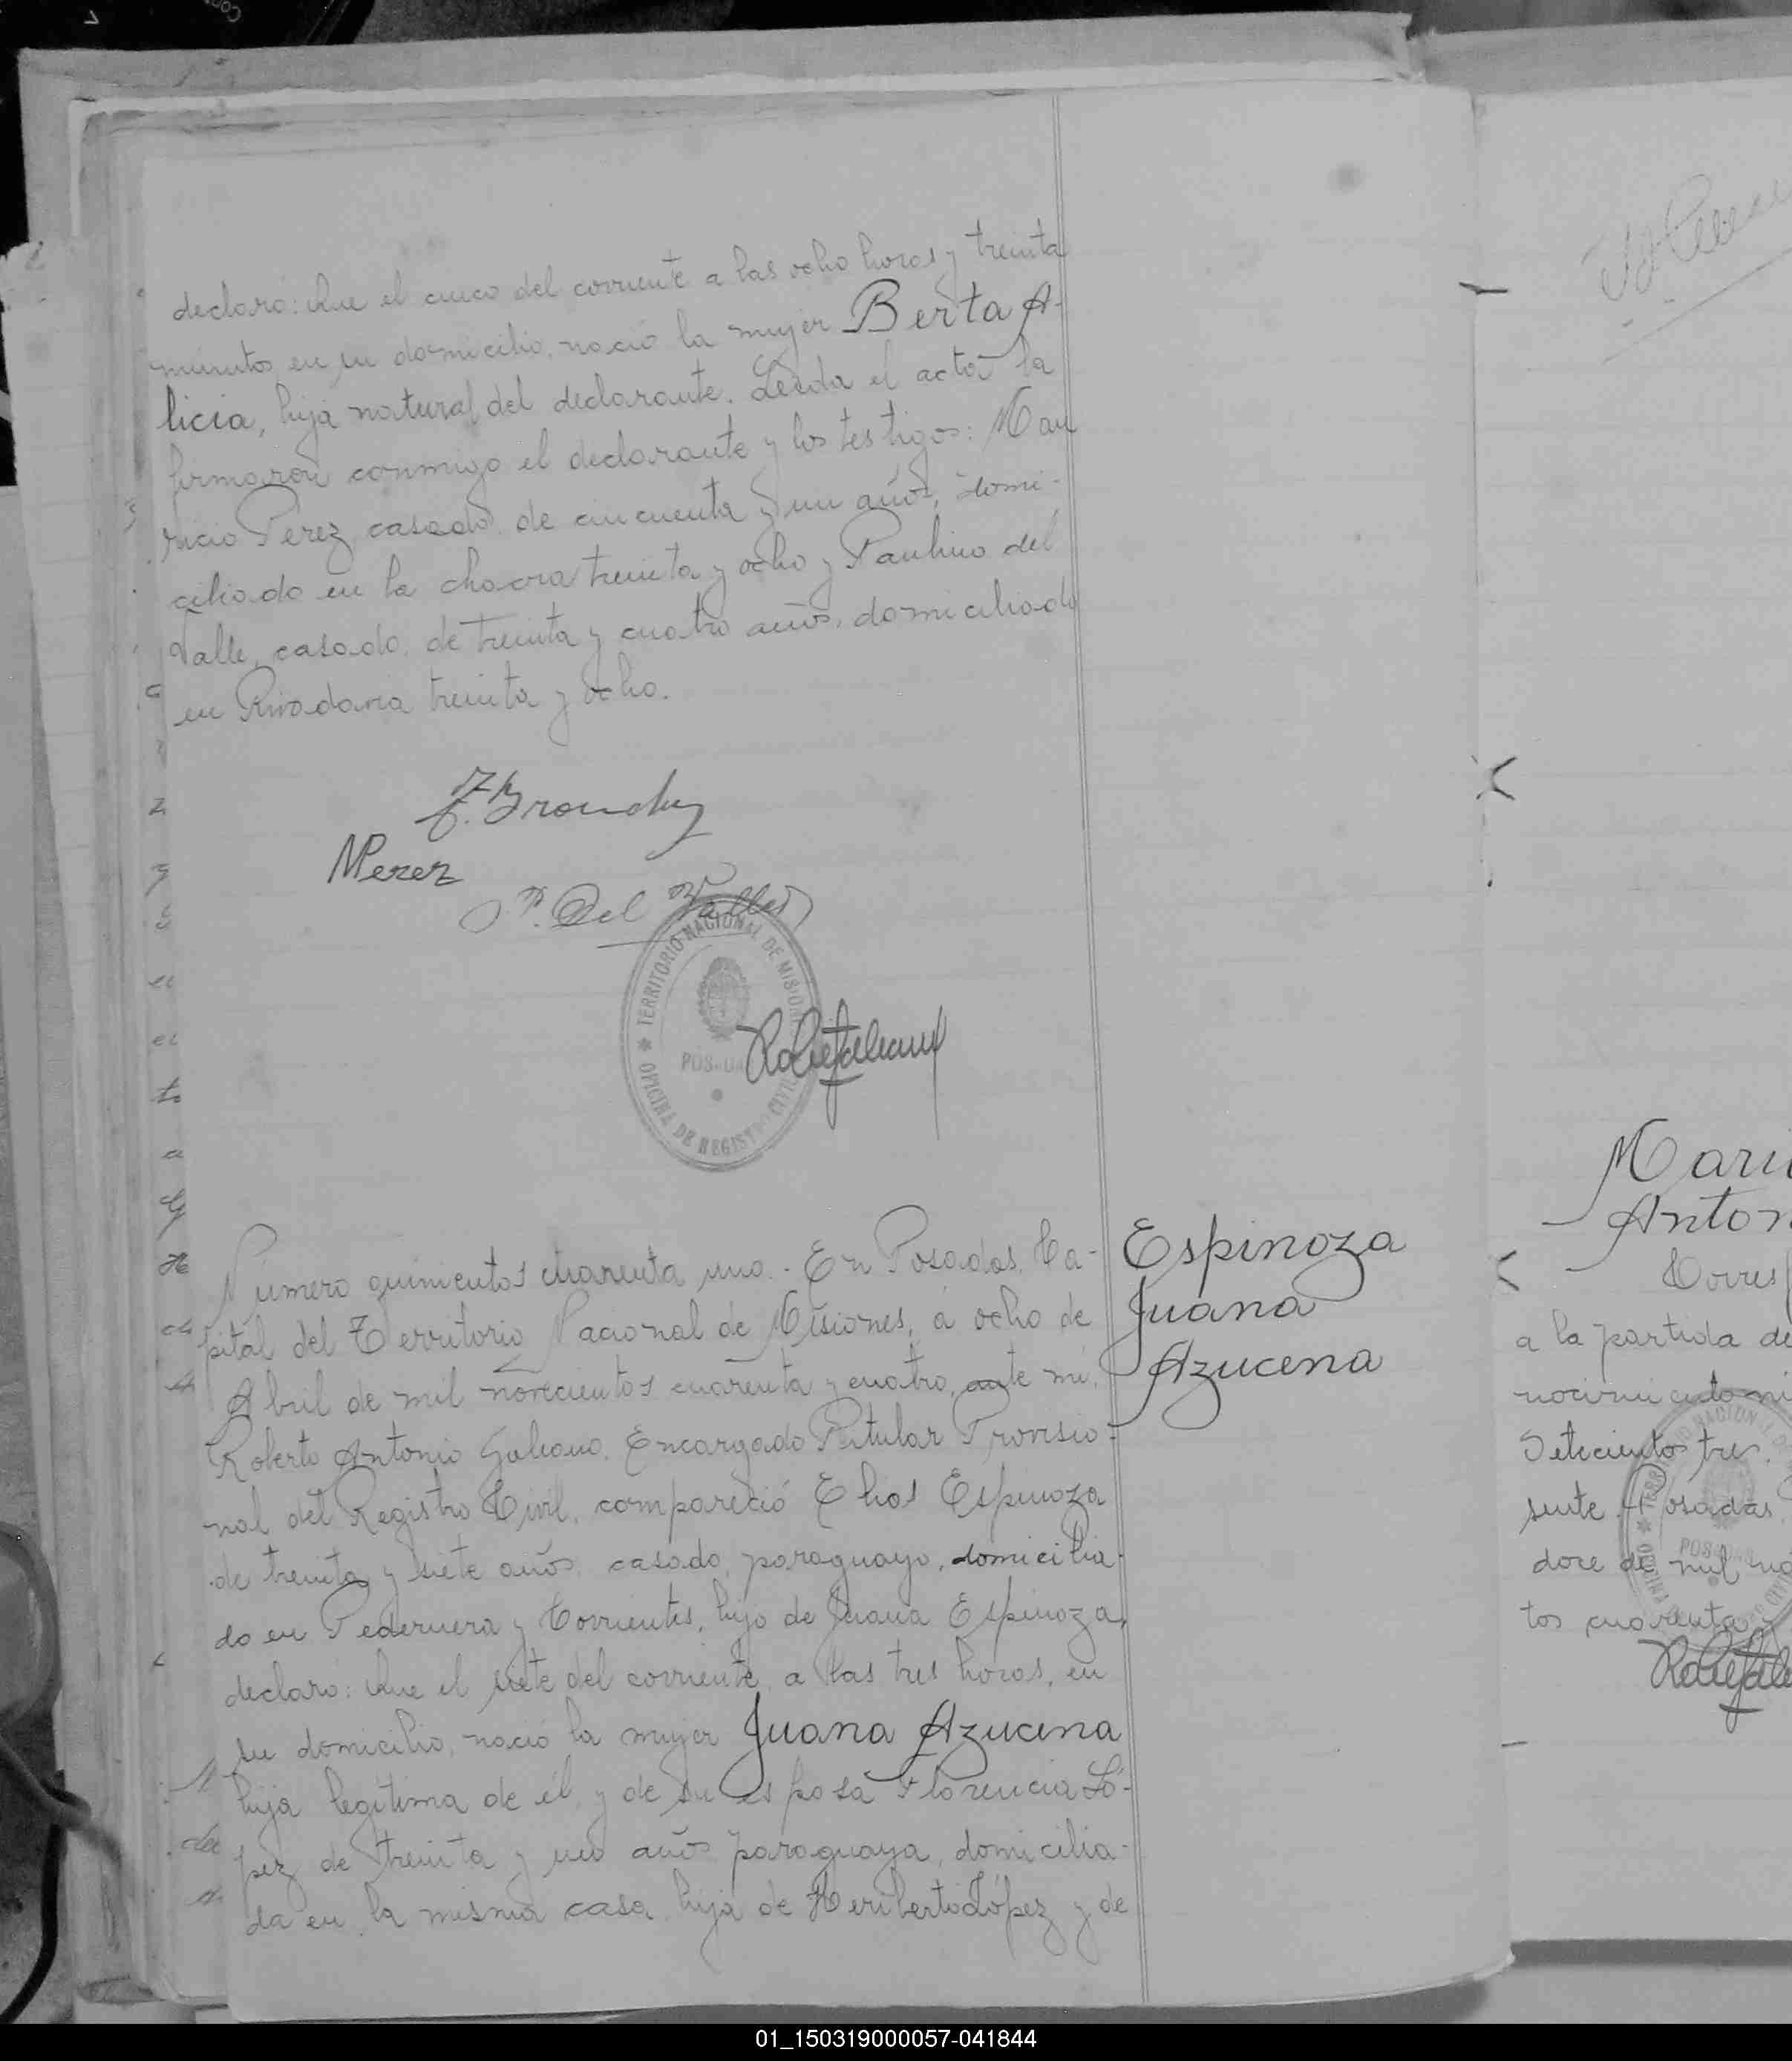 declaró: Que el cinco del corriente a las ocho horas y treinta
minutos en su domicilio, nació la mujer Berta A-
licia, hija natural del declarante. Leída el acta la
firmaron conmigo el declarante y los testigos: Mau
ricio Pérez, casado, de cincuenta y un años, domi-
ciliado en la chacra treinta y ocho y Paulino del
Valle, casado, de treinta y cuatro años, domiciliado
en Rivadavia treinta y ocho.
MPerez
P. Del Valle
TERRITORIO NACIONAL DE MISIONES
POSADAS
OFICINA DE REGISTRO CIVIL
Número quinientos cuarenta uno.- En Posadas, Ca-
pital del Territorio Nacional de Misiones, a ocho de
Abril de mil novecientos cuarenta y cuatro, ante mí,
Roberto Antonio Galeano, Encargado Titular Provisio-
nal del Registro Civil, compareció Elias Espinoza
de treinta y siete años, casado, paraguayo, domicilia-
do en Pedernera y Corrientes, hijo de Juana Espinoza,
declaró: Que el siete del corriente, a las tres horas, en
su domicilio, nació la mujer Juana Azucena
hija legítima de él, y de su esposa Florencia Ló-
pez de treinta y un años paraguaya, domicilia-
da en la misma casa, hija de Heriberto López y de
Espinoza
Juana
Azucena
Mari
Anton
Corres
a la partida de
nacimiento
Setecientos tres
Posadas
doce de mil no
tos cuarenta y
01_150319000057-041844